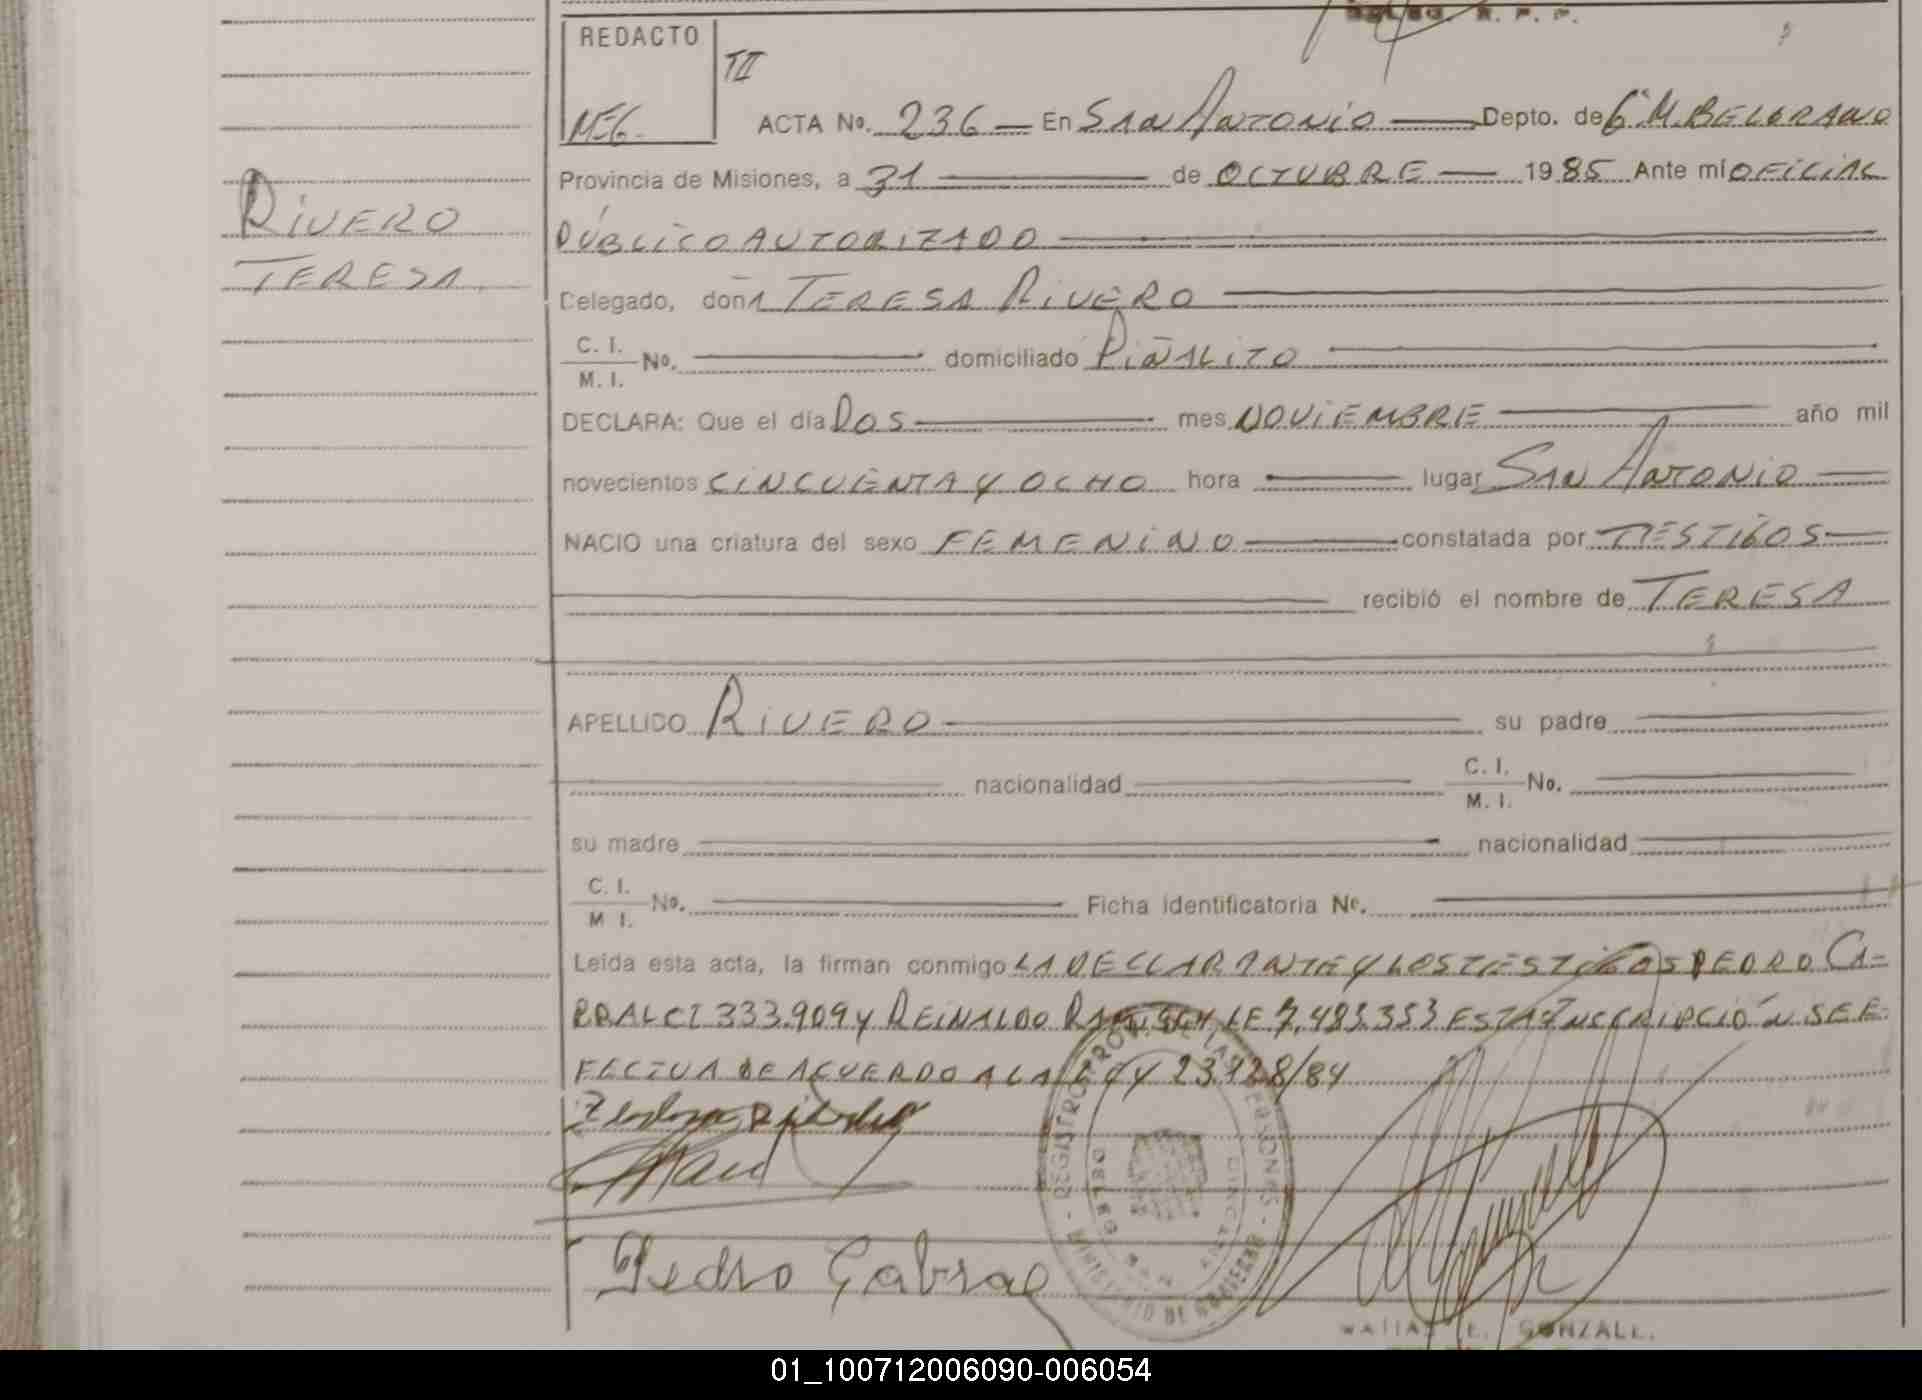 DELEG. R. P. P.
REDACTO
MEG.
II
ACTA No. 236 En SAN ANTONIO Depto. de G. M. BELGRANO
Provincia de Misiones, a 31 de OCTUBRE 1985 Ante mi OFICIAL
PÚBLICO AUTORIZADO
RIVERO
TERESA
Delegado, doñA TERESA RIVERO
C. I.
M. I. No. domiciliado PIÑALITO
DECLARA: Que el día DOS mes NOVIEMBRE año mil
novecientos CINCUENTA Y OCHO hora lugar SAN ANTONIO
NACIO una criatura del sexo FEMENINO constatada por TESTIGOS
recibió el nombre de TERESA
APELLIDO RIVERO su padre
nacionalidad C. I.
M. I. No.
su madre nacionalidad
C. I.
M I. No. Ficha identificatoria No.
Leída esta acta, la firman conmigo LA DECLARANTE Y LOS TESTIGOS PEDRO CA-
BRAL CI 333.909 Y REINALDO LE 7.483.353 ESTA INSCRIPCIÓN SE E-
FECTUA DE ACUERDO A LA LEY 23.128/84
Pedro Cabral
REGISTRO PROV. DE LAS PERSONAS - MINISTERIO DE GOBIERNO
E. GONZALE.
01_100712006090-006054